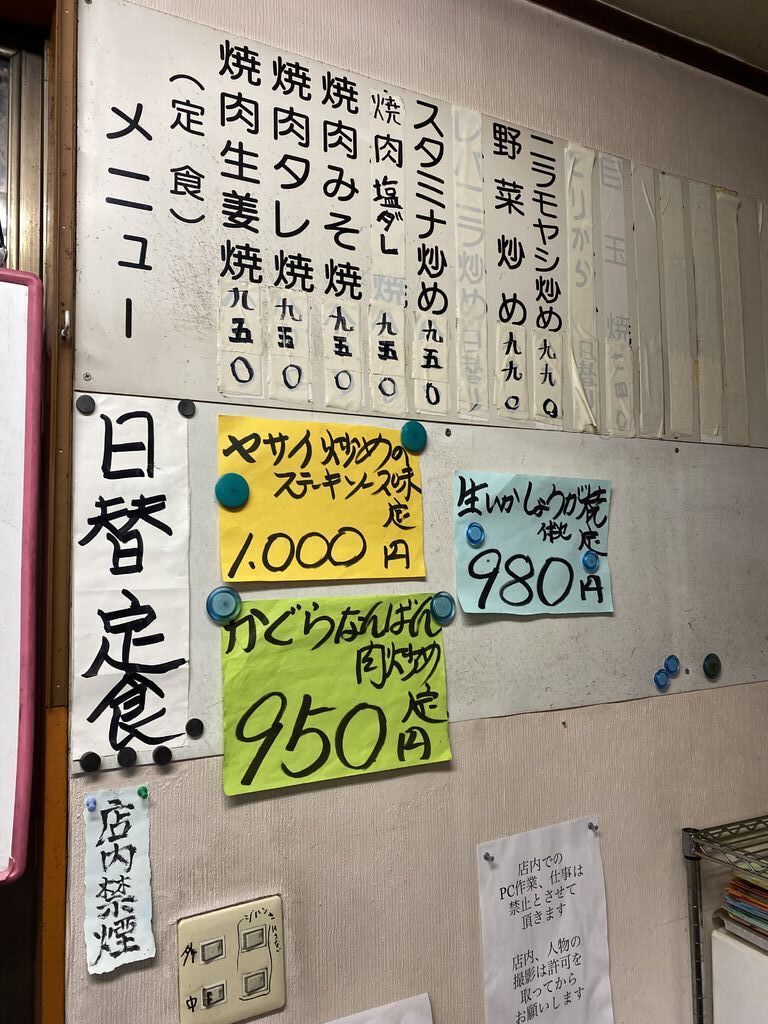 メニュー
（定食）
焼肉生姜焼 九五〇
焼肉タレ焼 九五〇
焼肉みそ焼 九五〇
焼肉塩ダレ焼 九五〇
スタミナ炒め 九五〇
レバニラ炒め 日替り
野菜炒め 九九〇
ニラモヤシ炒め 九九〇
とりから 日替り
目玉焼
日替定食
ヤサイ炒めの
ステーキソース味
定
1.000円
生いかしょうが焼
定
980円
かぐらなんばん
肉炒め
定
950円
店内禁煙
外
中
店内での
PC作業、仕事は
禁止とさせて
頂きます
店内、人物の
撮影は許可を
取ってから
お願いします